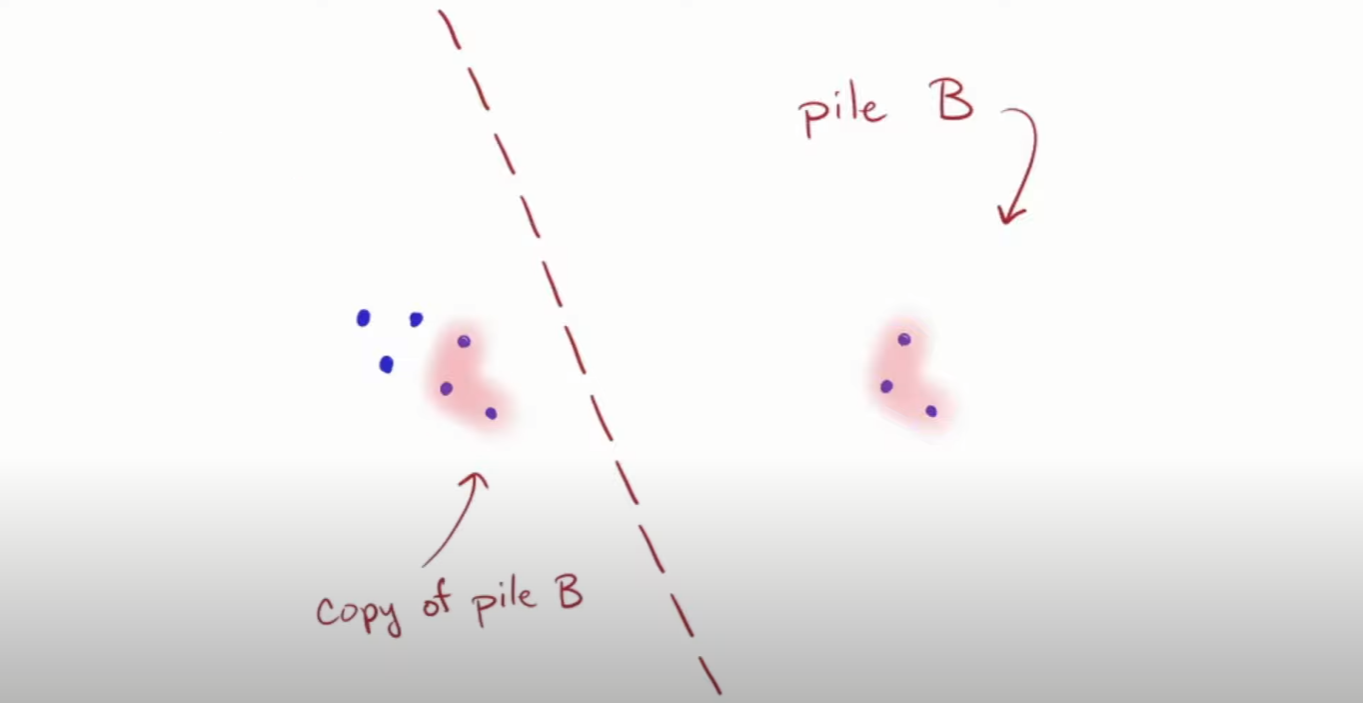 pile B
Copy of pile B